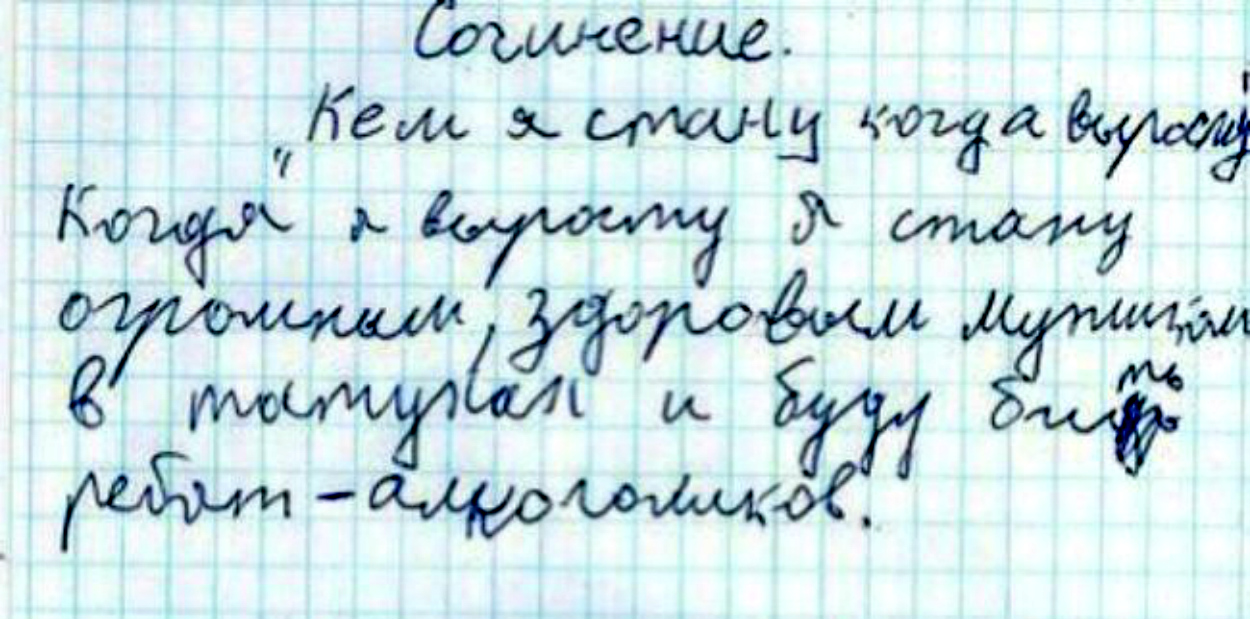 Сочинение.
"Кем я стану когда вырасту"
Когда я вырасту я стану
огромным, здоровым мужиком
в татухах и буду бить
ребят - алкоголиков.